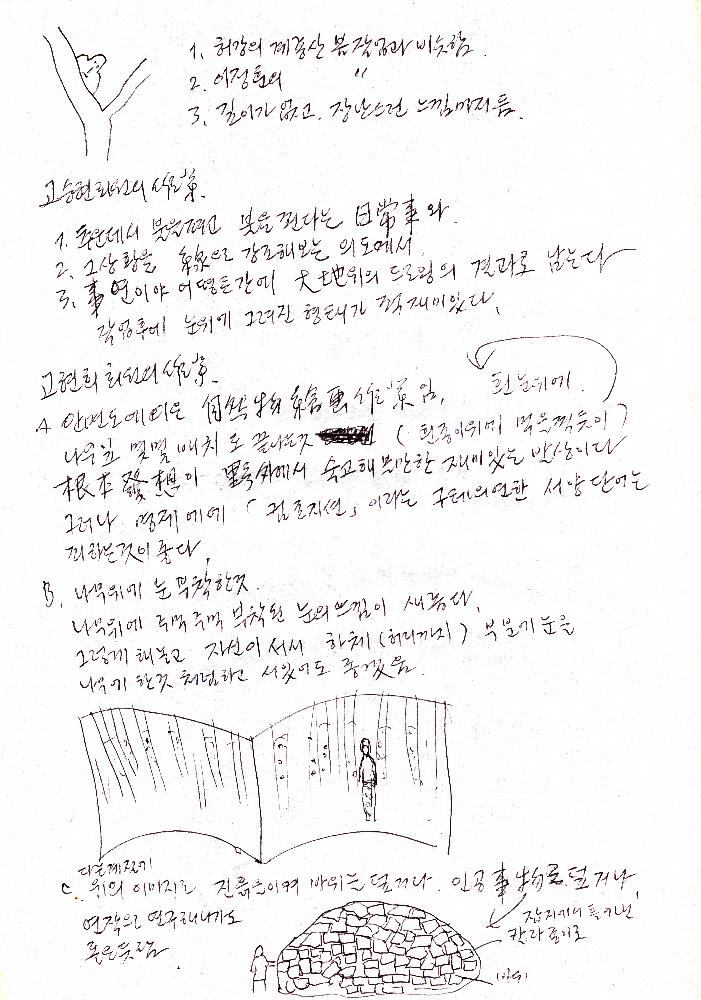 1. 허강의 계룡산 봄작업과 비슷함.
2. 이정훈의 〃
3. 깊이가 없고. 장난스런 느낌마저 듬.
고승현회원의 作業.
1. 추운데서 불을 펴고 불을 쬔다는 日常事와.
2. 그 상황을 線으로 강조해보는 의도에서.
3. 事연이야 어떻든간에 大地위의 드로잉의 결과로 남는다
작업후에 눈위에 그려진 형태가 퍽 재미있다.
고현희 회원의 作業.
A 안면도에서의 自然物 繪畵 作業임. 흰눈위에.
나뭇잎 몇몇 배치로 끝나는것 (흰종이위에 먹을 찍듯이)
根本發想이 野外에서 숙고해 볼만한 재미있는 발상이다
그러나 명제에 「컴포지션」이라는 구태의연한 서양단어는
피하는것이 좋다.
B. 나무위에 눈 부착한것.
나무위에 주먹주먹 부착된 눈의 느낌이 새롭다.
그렇게 해놓고 자신이 서서 하체(허리까지) 부분에 눈을
나무에 한것처럼하고 서있어도 좋겠음.
다른계절기
C. 위의 이미지로 진흙을 이겨 바위를 덮거나. 인공事物을 덮거나,
연작으로 연구해 나가도
좋은듯함.
잡지에서 뜯어낸
칼라종이로
바위